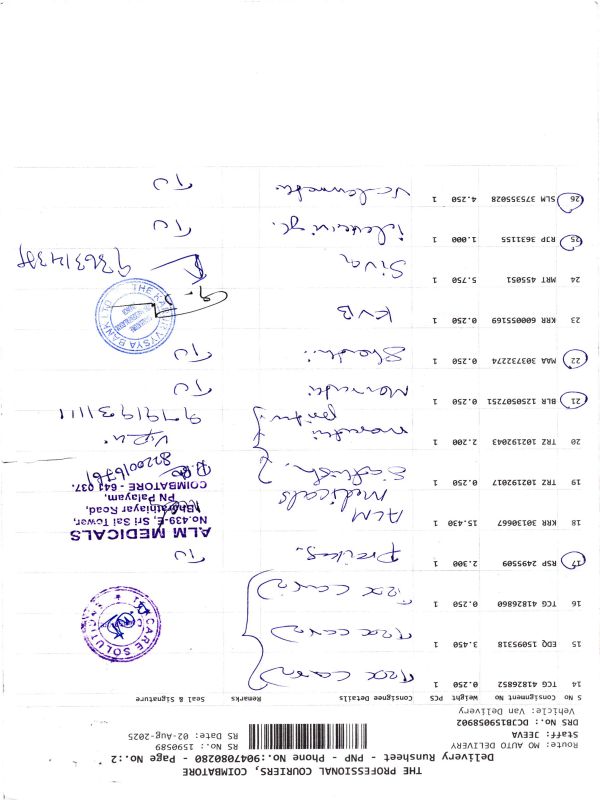 THE PROFESSIONAL COURIERS, COIMBATORE
Delivery Runsheet - PNP - Phone No.:9047080280 - Page No.:2
Route: MO AUTO DELIVERY
Staff: JEEVA
DRS No.: DCJB15905B902
Vehicle: Van Delivery
RS No.: 1590689
RS Date: 02-Aug-2025
S No Consignment No Weight PCS Consignee Details Remarks Seal & Signature
14 TCG 41826852 0.250 1
15 EDQ 15095318 3.450 1
16 TCG 41826860 0.250 1
CARE SOLUTIONS
17 RSP 2495509 2.300 1 TU
18 KRR 30130667 15.430 1 ALM Medicals
ALM MEDICALS
No.439-E, Sri Sai Tower,
Bharathiyar Road,
PN Palayam,
COIMBATORE - 641 037.
19 TRZ 102192017 0.250 1 Sathish
8220016761
20 TRZ 102192043 2.200 1 maruthi
9791931111
21 BLR 1250507251 0.250 1 Maruthi TU
22 MAA 303732274 0.250 1 TU
23 KRR 600055169 0.250 1 KVB
THE KARUR VYSYA BANK LTD
24 MRT 455051 5.750 1 Siva
25 RJP 3631155 1.000 1 TU
26 SLM 375355028 4.250 1 TU